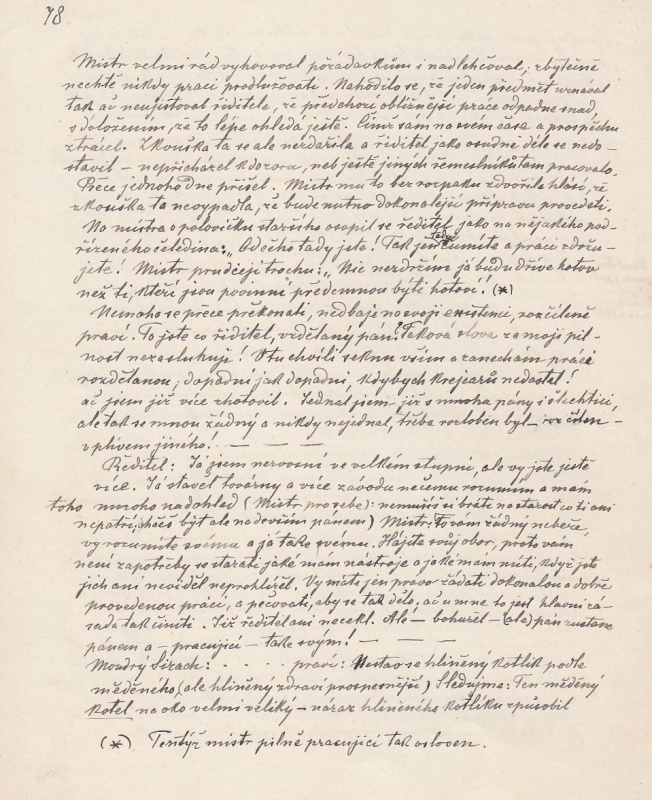 78
Mistr velmi rád vyhovoval požádavkům i nadlehčoval; zbytečně
nechtě nikdy praci prodlužovati. Nahodilo se, že jeden předmět uznával
tak ač neujistoval řiditele, že předchozí obtížnější práce odpadne snad,
s doložením, že to lépe ohledá ještě. Čímž sám na svém čase a prospěchu
ztrácel. Zkouška ta se ale nezdařila a řiditel jako osudné dělo se nedo-
stavil – nepřicházel k dozoru, neb ještě jiných řemeslníků tam pracovalo.
Přece jednoho dne přišel. Mistr mu to bez rozpaku zdvořile hlásí, že
zkouška ta neovypadla, že bude nutno dokonalejší přípravu provedsti.
Na mistra o polovičku staršího osopil se ředitel jako na nějakého pod-
řízeného čeledína: „Od čeho tady jste! Tak jen tady čumíte a práci zdržu-
jete! Mistr prudčeji trochu: „Nic nezdržím já budu dříve hotov
než ti, kteří jsou povinni předemnou býti hotovi! (*)
Nemoha se přece překonati, nedbaje na svoji existenci, rozčileně
praví. To jste co řiditel, vzdělaný pán! Taková slova za moji pil-
nost nezasluhuji! V tu chvíli seknu vším a zanechám práci
rozdělanou; dopadni jak dopadni, kdybych krejcarů nedostal!
ač jsem již více zhotovil. Jednal jsem již s mnoha pány i šlechtici,
ale tak se mnou žádný a nikdy nejednal, třeba rozloben byl –
vplivem jiného! – – –
Ředitel: Já jsem nervosní ve velkém stupni, ale vy jste ještě
více. Já stavět továrny a více závodu nečemu rozumím a mám
toho mnoho nadohled (Mistr pro sebe): nemusíš si bráti na starost co ti ani
nepatří, chceš být ale nadevším pánem) Mistr: To vám žádný nebeře,
vy rozumíte svému a já také svému. Hájíte svůj obor, proto vám
není zapotřeby se starati jaké mám nástroje a jaké mám míti, když jste
jich ani neviděl neprohlížel. Vy máte jen pravo žádati dokonalou a dobře
provedenou práci, a pečovati, aby se tak dělo; ač u mne to jest hlavní zá-
sada tak činiti. Již ředitel ani neceknl. Ale – bohužel – (ale) pán zustane
pánem a – pracující – také svým! – – –
Moudrý Sirach: . . . . praví: Nestav se hliněný kotlík podle
měděného, (ale hliněný zdraví prospesnější) Sledujme: Ten měděný
kotel na oko velmi veliký – náraz hliněného kotlíku způsobil
(*) Tentýž mistr pilně pracující tak osloven.